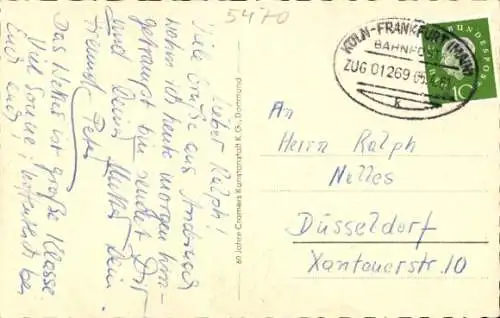 5470
Lieber Ralph!
Viele Grüße aus Andernach
wohin ich heute morgen hin-
getrampt bin sendet Dir
und Deiner Mutter Dein
Freund Peter
Das Wetter ist große Klasse
Viel Sonne! hoffentlich bei
Euch auch!
60 Jahre Cramers Kunstanstalt K.G., Dortmund
KÖLN-FRANKFURT (MAIN)
BAHNPOST
ZUG 01269
K
BUNDESPOST
10
An
Herrn Ralph
Nelles
Düsseldorf
Xantenerstr. 10